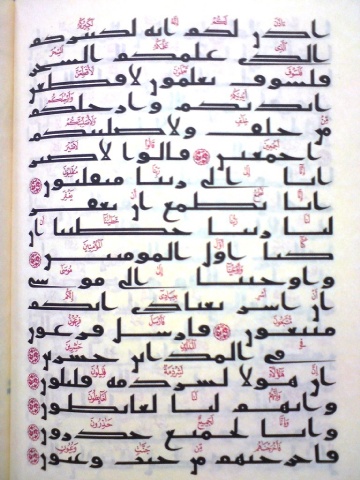 اذن لكم انه لكبيركم
الذي علمكم السحر
فلسوف تعلمون لاقطعن
ايديكم وارجلكم
من خلف ولاصلبنكم
اجمعين قالوا لا ضير
انا الى ربنا منقلبون
انا نطمع ان يغفر
لنا ربنا خطينا ان
كنا اول المومنين
واوحينا الى موسى
ان اسر بعبادي انكم
متبعون فارسل فرعون
في المداين حشرين
ان هولا لشرذمة قليلون
وانهم لنا لغايظون
وانا لجميع حذرون
فاخرجنهم من جنت وعيون